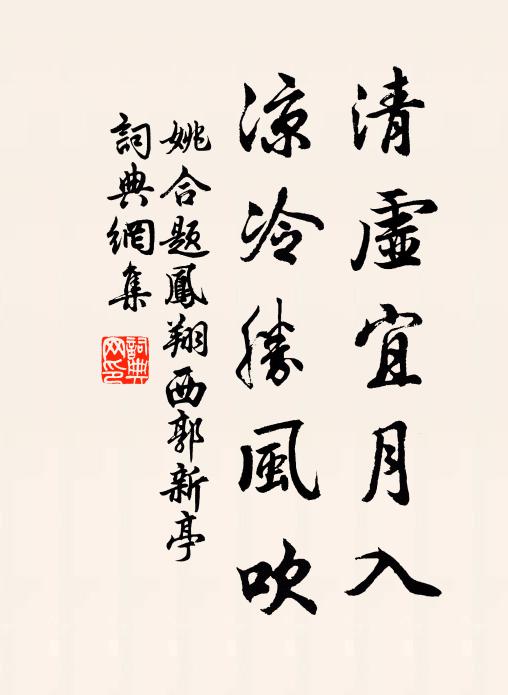 清虛宜月入
凉冷勝風吹
姚合題鳳翔西郭新亭
詞典網集
詞典網印